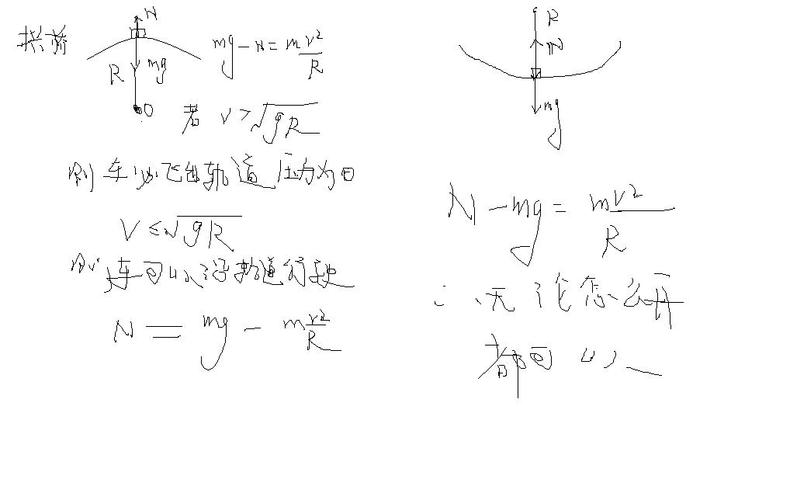 拱前
N
mg
R
O
mg - N = m v²/R
若 v > √gR
则车必飞出轨道 压力为0
V ≤ √gR
则 车可以沿轨道行驶
N = mg - m v²/R
R
N
mg
N - mg = mv²/R
∴ 无论怎么开
都可以